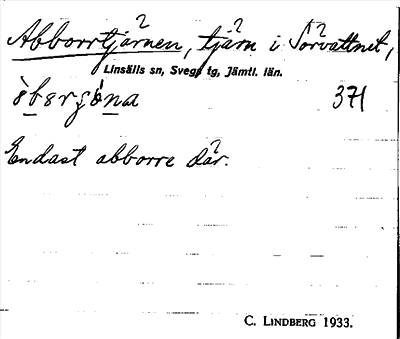 Abborrtjärnen, tjärn i Torvattnet,
Linsälls sn, Svegs tg, Jämtl. län.
371
Endast abborre där.
C. LINDBERG 1933.